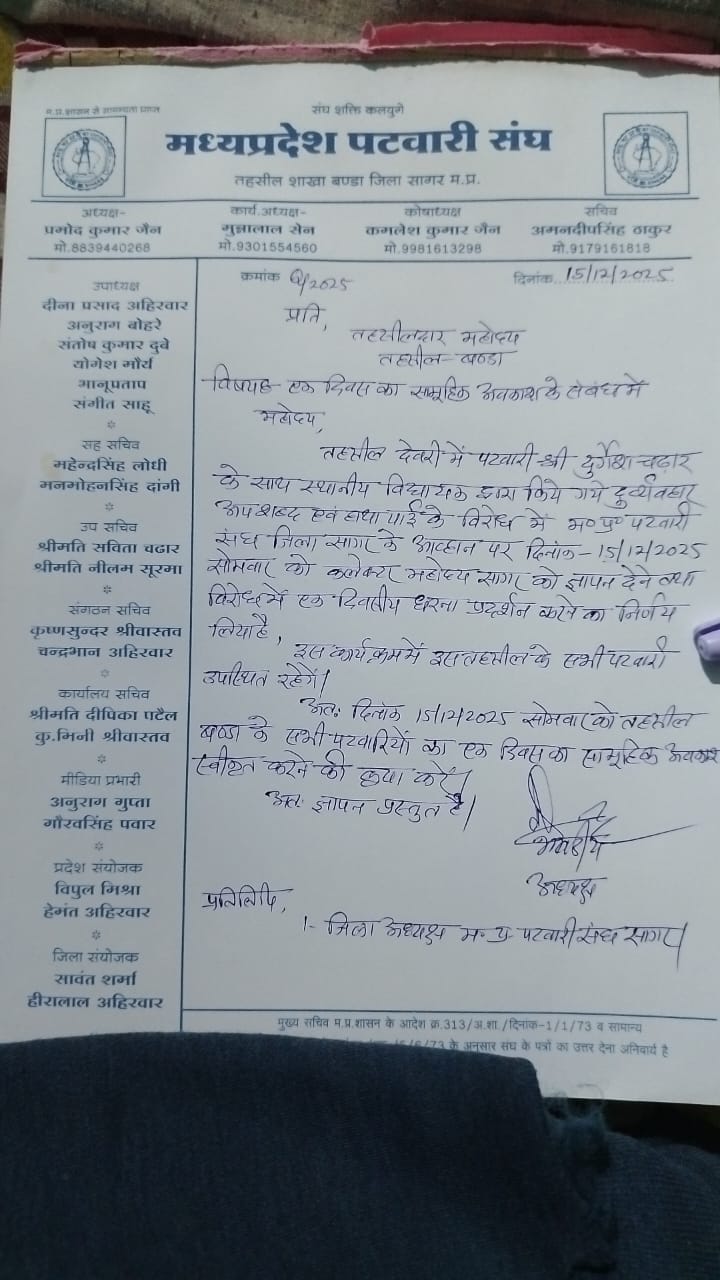 म.प्र.शासन से मान्यता प्राप्त
संघ शक्ति कलयुगे
मध्यप्रदेश पटवारी संघ
तहसील शाखा बण्डा जिला सागर म.प्र.
अध्यक्ष-
प्रमोद कुमार जैन
मो.8839440268
कार्य.अध्यक्ष-
मुन्नालाल सेन
मो.9301554560
कोषाध्यक्ष
कमलेश कुमार जैन
मो.9981613298
सचिव
अमनदीपसिंह ठाकुर
मो.9179161818
उपाध्यक्ष
दीना प्रसाद अहिरवार
अनुराग बोहरे
संतोष कुमार दुबे
योगेश मौर्य
भानूप्रताप
संगीत साहू
सह सचिव
महेन्द्रसिंह लोधी
मनमोहनसिंह दांगी
उप सचिव
श्रीमति सविता चढार
श्रीमति नीलम सूरमा
संगठन सचिव
कृष्णसुन्दर श्रीवास्तव
चन्द्रभान अहिरवार
कार्यालय सचिव
श्रीमति दीपिका पटैल
कु.मिनी श्रीवास्तव
मीडिया प्रभारी
अनुराग गुप्ता
गौरवसिंह पवार
प्रदेश संयोजक
विपुल मिश्रा
हेमंत अहिरवार
जिला संयोजक
सावंत शर्मा
हीरालाल अहिरवार
क्रमांक Q/2025 दिनांक 15/12/2025
प्रति,
तहसीलदार महोदय
तहसील-बण्डा
विषयः- एक दिवस का सामूहिक अवकाश के संबंध में
महोदय,
तहसील देवरी में पटवारी श्री दुर्गेश चढ़ार
के साथ स्थानीय विधायक द्वारा किये गये दुर्व्यवहार
अपशब्द एवं हाथापाई के विरोध में म०प्र० पटवारी
संघ जिला सागर के आव्हान पर दिनांक-15/12/2025
सोमवार को कलेक्टर महोदय सागर को ज्ञापन देने तथा
विरोध में एक दिवसीय धरना प्रदर्शन करने का निर्णय
लिया है,
इस कार्यक्रम में इस तहसील के सभी पटवारी
उपस्थित रहेंगे।
अतः दिनांक 15/12/2025 सोमवार को तहसील
बण्डा के सभी पटवारियों का एक दिवस का सामूहिक अवकाश
स्वीकृत करने की कृपा करें।
अतः ज्ञापन प्रस्तुत है।
अध्यक्ष
प्रतिलिपि,
1- जिला अध्यक्ष म.प्र. पटवारी संघ सागर।
मुख्य सचिव म.प्र.शासन के आदेश क्र.313/अ.शा./दिनांक-1/1/73 व सामान्य
/6/73 के अनुसार संघ के पत्रों का उत्तर देना अनिवार्य है